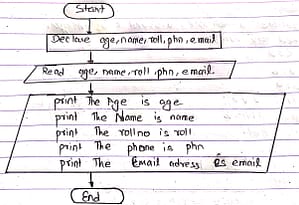 Start
Declare age, name, roll, phn, email
Read age, name, roll, phn, email.
print The Age is age
print The Name is name
print The rollno is roll
print The phone is phn
print The Email adress is email
End